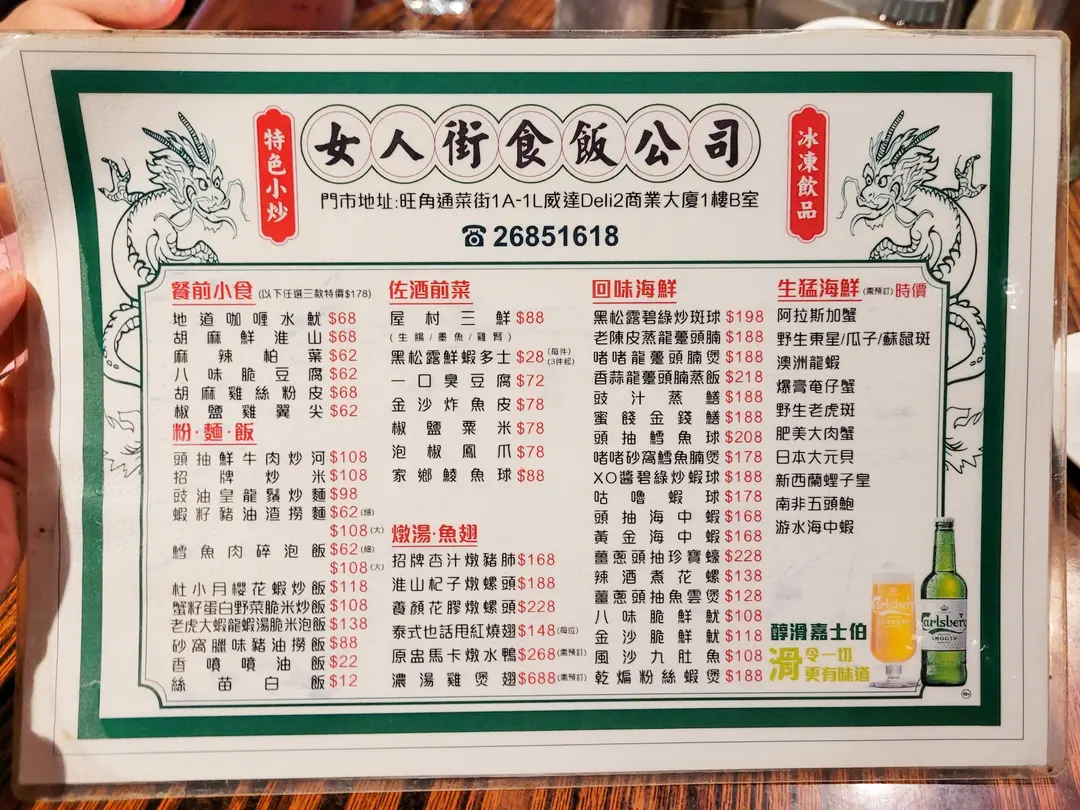 特色小炒
女人街食飯公司
冰凍飲品
門市地址:旺角通菜街1A-1L威達Deli2商業大廈1樓B室
☎ 26851618
餐前小食 (以下任選三款特價$178)
地道咖喱水魷 $68
胡麻鮮淮山 $68
麻辣柏葉 $62
八味脆豆腐 $62
胡麻雞絲粉皮 $68
椒鹽雞翼尖 $62
粉·麵·飯
頭抽鮮牛肉炒河 $108
招牌炒米 $108
豉油皇龍鬚炒麵 $98
蝦籽豬油渣撈麵 $62 (細)
$108 (大)
鱈魚肉碎泡飯 $62 (細)
$108 (大)
杜小月櫻花蝦炒飯 $118
蟹籽蛋白野菜脆米炒飯 $108
老虎大蝦龍蝦湯脆米泡飯 $138
砂窩臘味豬油撈飯 $88
香噴噴油飯 $22
絲苗白飯 $12
佐酒前菜
屋村三鮮 $88
(生腸/墨魚/雞腎)
黑松露鮮蝦多士 $28 (每件) (3件起)
一口臭豆腐 $72
金沙炸魚皮 $78
椒鹽粟米 $78
泡椒鳳爪 $78
家鄉鯪魚球 $88
燉湯·魚翅
招牌杏汁燉豬肺 $168
淮山杞子燉螺頭 $188
養顏花膠燉螺頭 $228
泰式也話甩紅燒翅 $148 (每位)
原盅馬卡燉水鴨 $268 (需預訂)
濃湯雞煲翅 $688 (需預訂)
回味海鮮
黑松露碧綠炒斑球 $198
老陳皮蒸龍躉頭腩 $188
啫啫龍躉頭腩煲 $188
香蒜龍躉頭腩蒸飯 $218
豉汁蒸鱔 $188
蜜餞金錢鱔 $188
頭抽鱈魚球 $208
啫啫砂窩鱈魚腩煲 $178
XO醬碧綠炒蝦球 $188
咕嚕蝦球 $178
頭抽海中蝦 $168
黃金海中蝦 $168
薑蔥頭抽珍寶蠔 $228
辣酒煮花螺 $138
薑蔥頭抽魚雲煲 $128
八味脆鮮魷 $108
金沙脆鮮魷 $118
風沙九肚魚 $108
乾煸粉絲蝦煲 $188
生猛海鮮 (需預訂) 時價
阿拉斯加蟹
野生東星/瓜子/蘇鼠斑
澳洲龍蝦
爆膏奄仔蟹
野生老虎斑
肥美大肉蟹
日本大元貝
新西蘭蟶子皇
南非五頭鮑
游水海中蝦
醇滑嘉士伯
滑 令一切
更有味道
Carlsberg
Carlsberg
SMOOTH